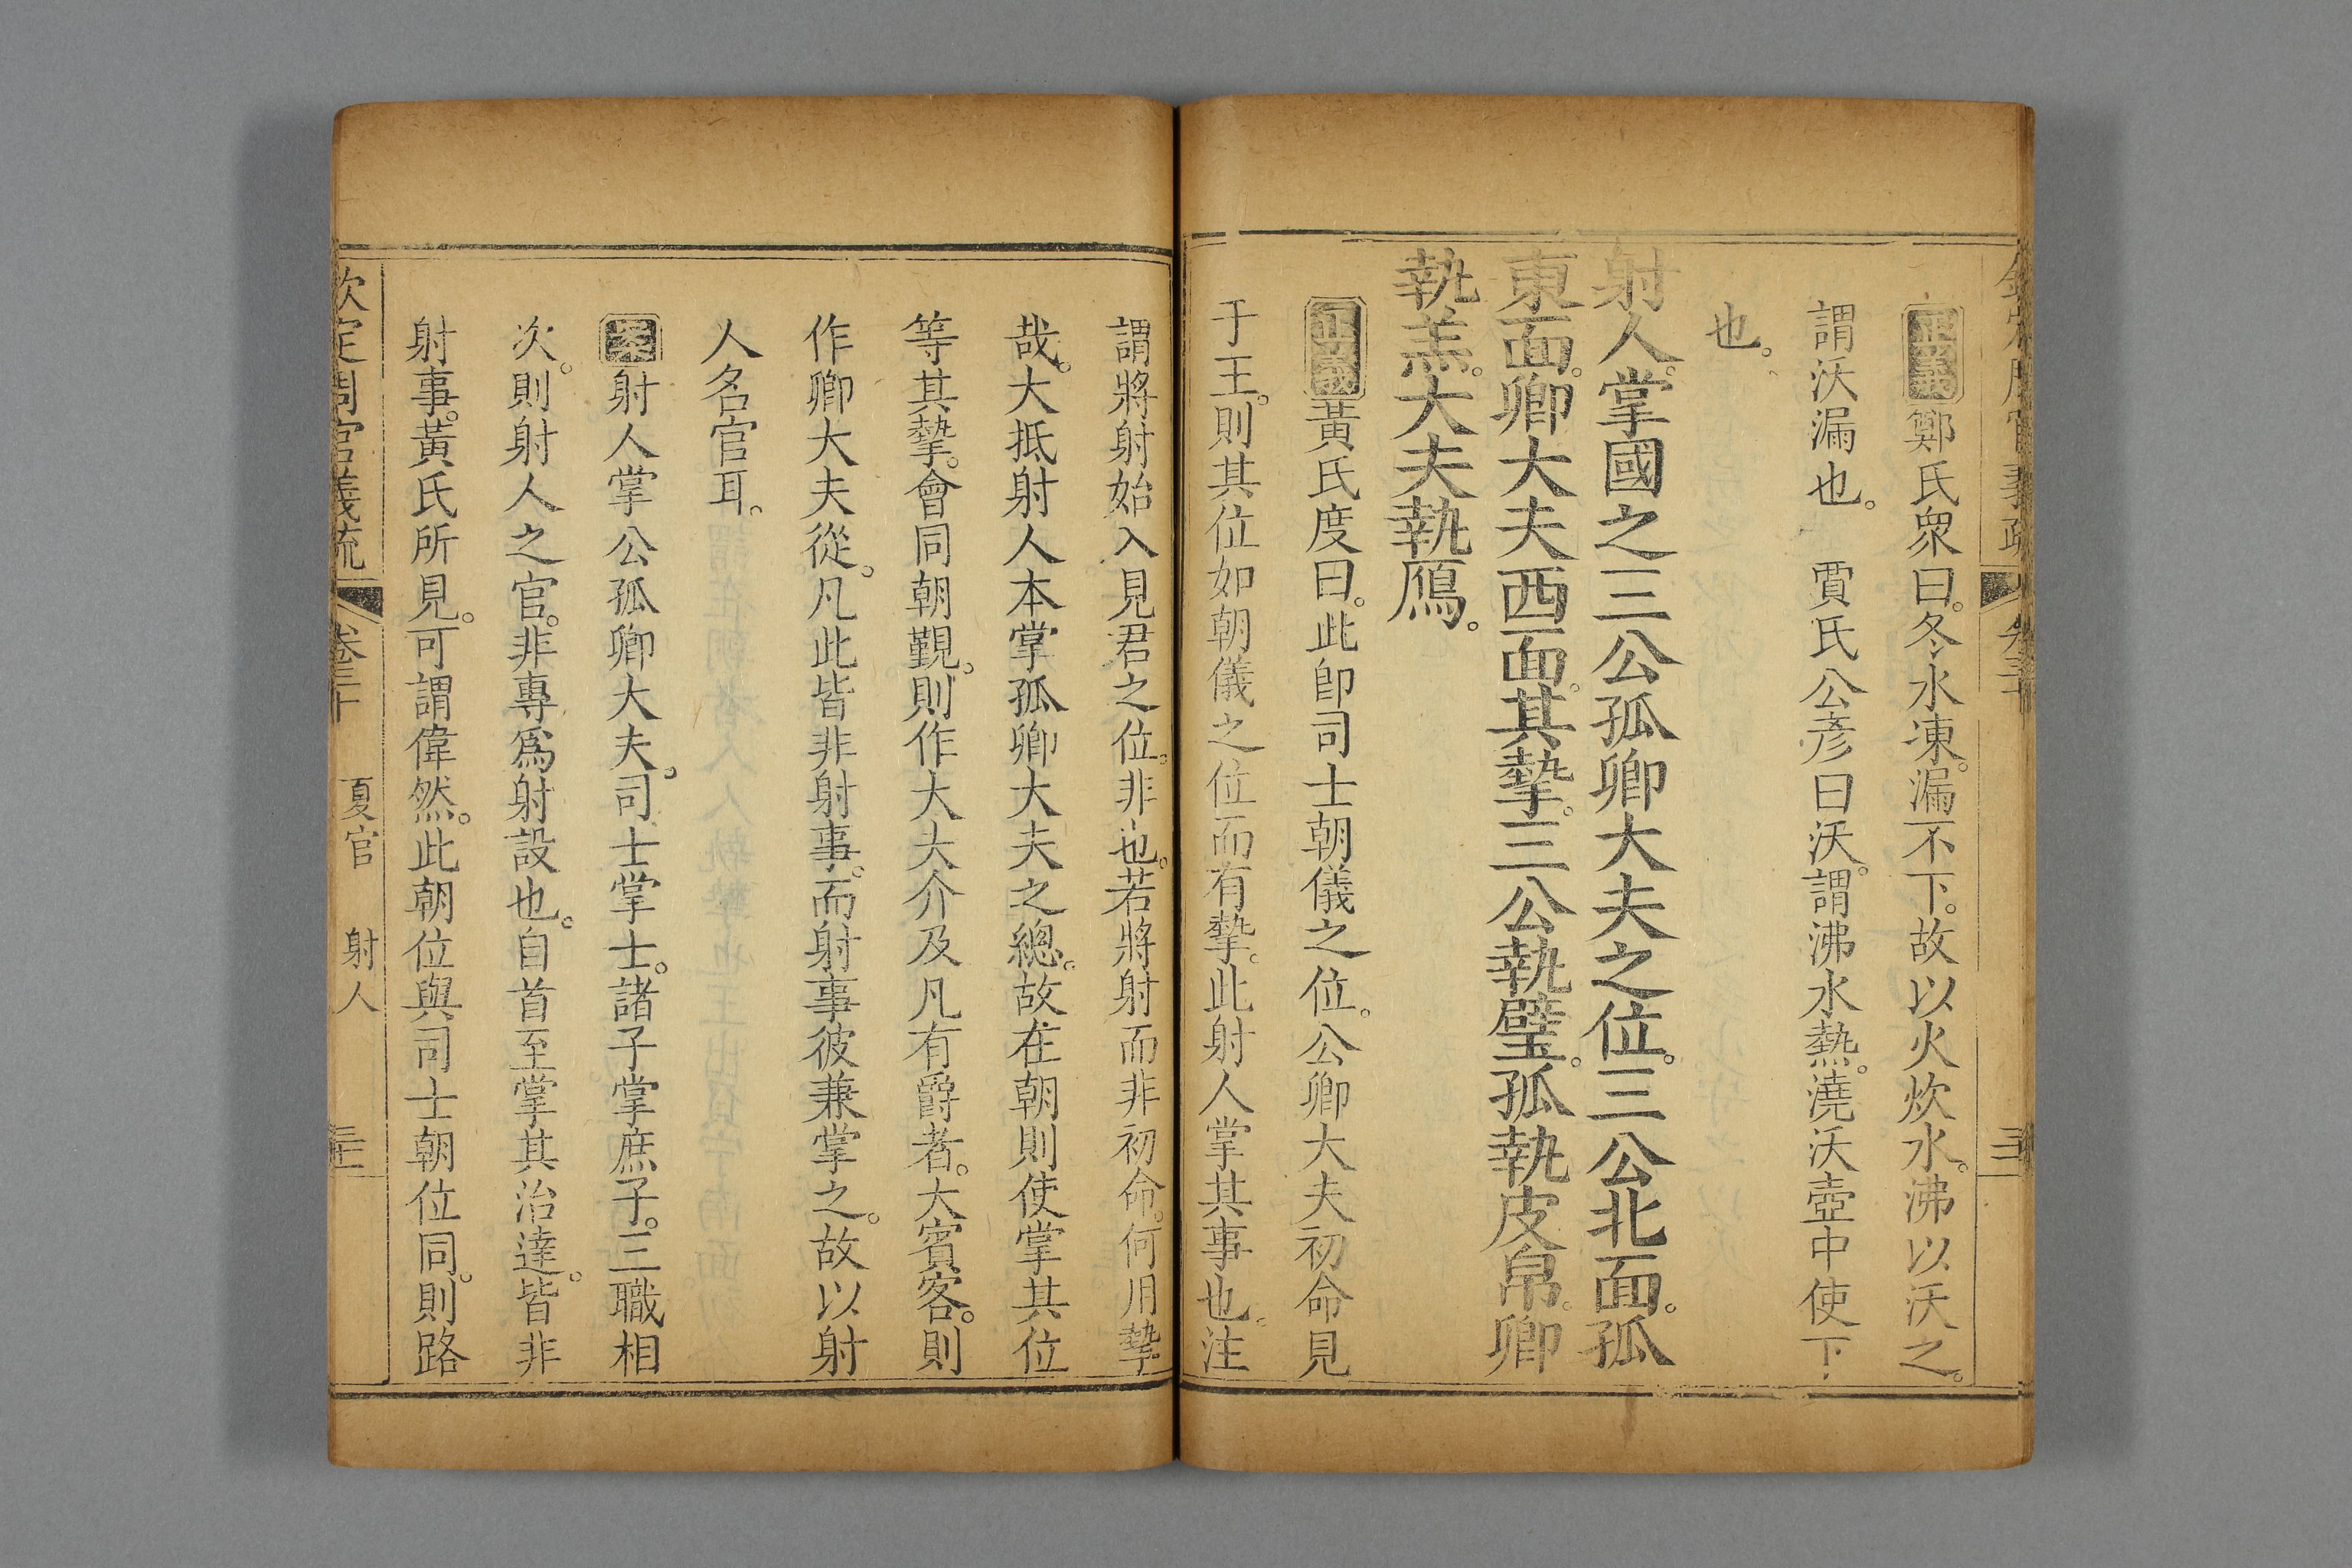 正義鄭氏衆曰。冬水凍。漏不下。故以火炊水。沸以沃之。
謂沃漏也。　賈氏公彥曰沃。謂沸水熱。澆沃壺中使下
也。
射人。掌國之三公孤卿大夫之位。三公北面。孤
東面。卿大夫西面。其摯。三公執璧。孤執皮帛。卿
執羔。大夫執鴈。
正義黃氏度曰。此卽司士朝儀之位。公卿大夫初命見
于王。則其位如朝儀之位而有摯。此射人掌其事也。注
謂將射始入見君之位。非也。若將射而非初命。何用摯
哉。大抵射人本掌孤卿大夫之總。故在朝則使掌其位
等其摯。會同朝覲。則作大夫介及凡有爵者。大賓客。則
作卿大夫從。凡此皆非射事。而射事彼兼掌之。故以射
人名官耳。
案射人掌公孤卿大夫。司士掌士。諸子掌庶子。三職相
次。則射人之官。非專爲射設也。自首至掌其治達。皆非
射事。黃氏所見。可謂偉然。此朝位與司士朝位同。則路
欽定周官義疏　卷三十　夏官　射人　三十二